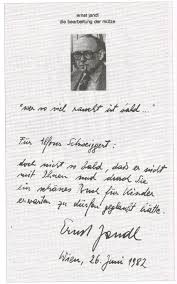 ernst jandl
die bearbeitung der mütze
"wer so viel raucht ist bald ..."
Für Alfons Schweiggert:
doch nicht so bald, dass er nicht
mit Ihnen und durch Sie
ein schönes Buch für Kinder
erwarten zu dürfen geglaubt hätte.
Ernst Jandl
Wien, 26. Juni 1982